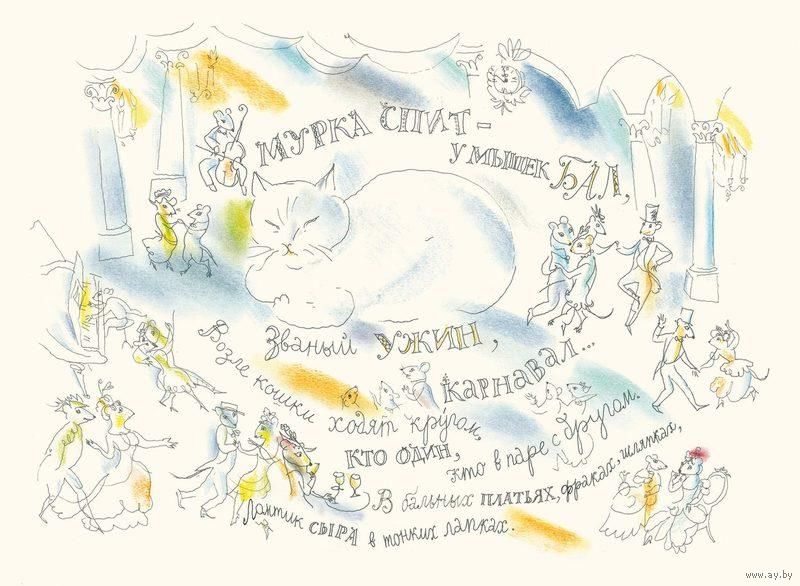 МУРКА СПИТ –
У МЫШЕК БАЛ,
Званый УЖИН,
КАРНАВАЛ...
Возле кошки ходят кругом,
КТО ОДИН,
кто в паре с другом.
В бальных ПЛАТЬЯХ, фраках, шляпках,
Ломтик СЫРА в тонких лапках.
www.ay.by